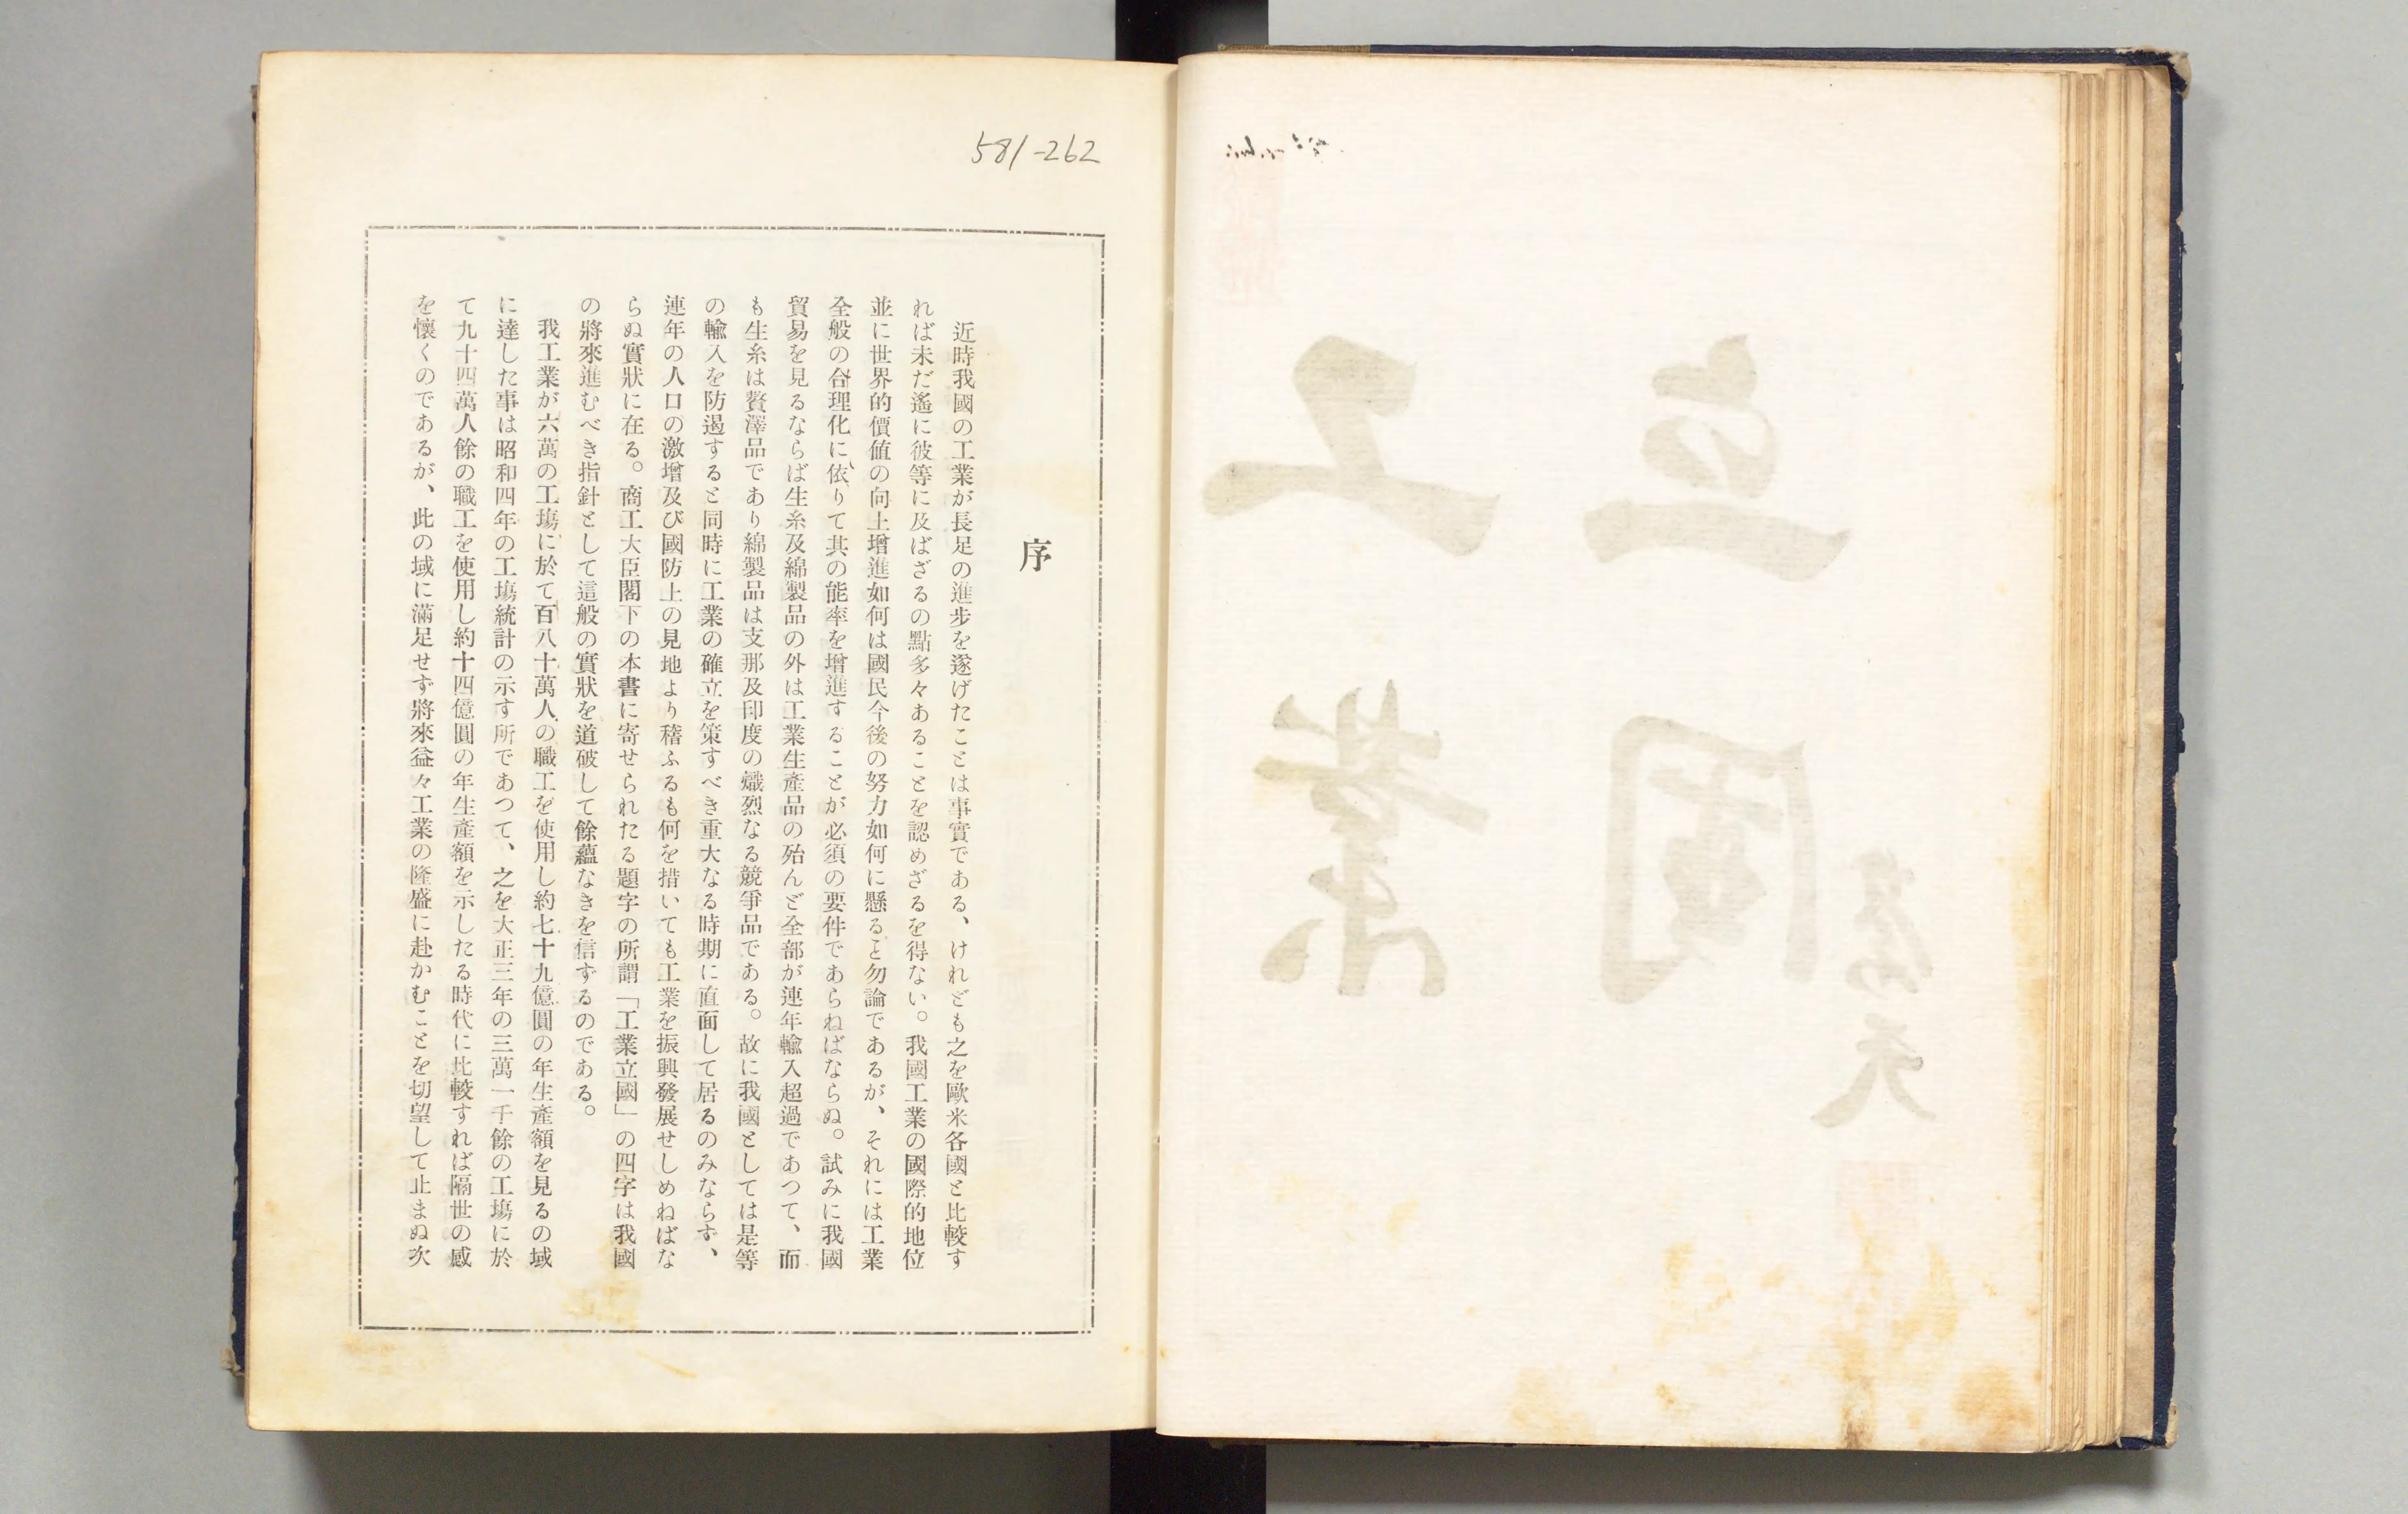 581-262
序
近時我國の工業が長足の進步を遂げたことは事實である、けれども之を歐米各國と比較す
れば未だ遙に彼等に及ばざるの點多々あることを認めざるを得ない。我國工業の國際的地位
並に世界的價値の向上增進如何は國民今後の努力如何に懸ると勿論であるが、それには工業
全般の合理化に依りて其の能率を增進することが必須の要件であらねばならぬ。試みに我國
貿易を見るならば生糸及綿製品の外は工業生產品の殆んど全部が連年輸入超過であつて、而
も生糸は贅澤品であり綿製品は支那及印度の熾烈なる競爭品である。故に我國としては是等
の輸入を防遏すると同時に工業の確立を策すべき重大なる時期に直面して居るのみならず、
連年の人口の激增及び國防上の見地より稽ふるも何を措いても工業を振興發展せしめねばな
らぬ實狀に在る。商工大臣閣下の本書に寄せられたる題字の所謂「工業立國」の四字は我國
の將來進むべき指針として這般の實狀を道破して餘蘊なきを信ずるのである。
我工業が六萬の工塲に於て百八十萬人の職工を使用し約七十九億圓の年生產額を見るの域
に達した事は昭和四年の工塲統計の示す所であつて、之を大正三年の三萬一千餘の工塲に於
て九十四萬人餘の職工を使用し約十四億圓の年生產額を示したる時代に比較すれば隔世の感
を懷くのであるが、此の域に滿足せず將來益々工業の隆盛に赴かむことを切望して止まぬ次
工業
立國